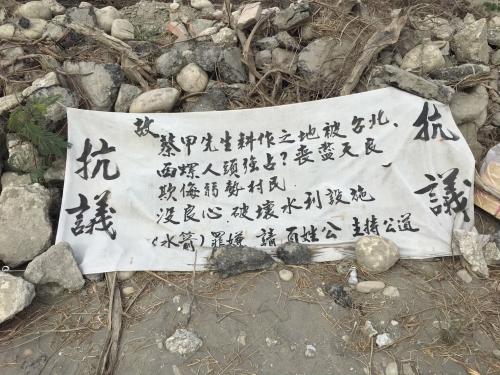 抗議
故蔡甲先生耕作之地被台北、
西螺人頭強占？喪盡天良
欺侮弱勢村民
沒良心破壞水利設施
(水箭)罪嫌 請百姓公主持公道
抗議